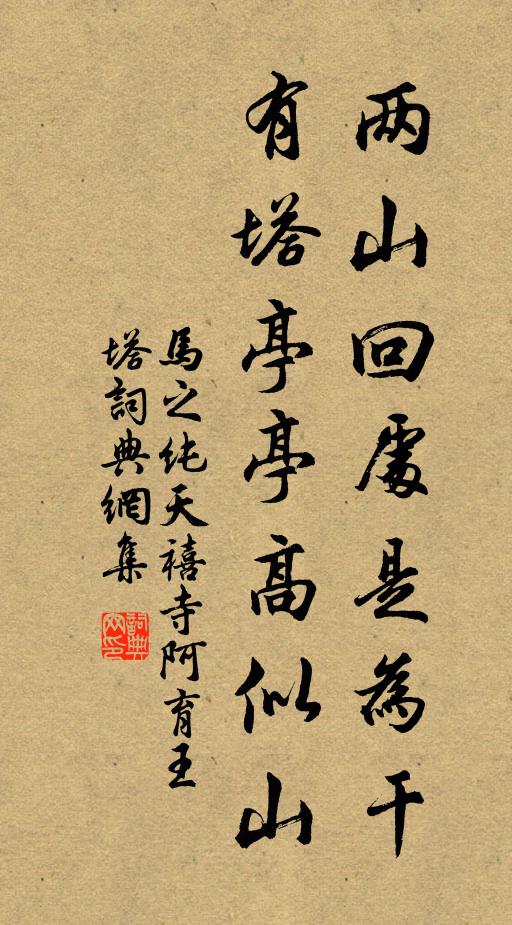 两山回處是為干
有塔亭亭高似山
馬之纯天禧寺阿育王
塔詞典網集
詞典網印